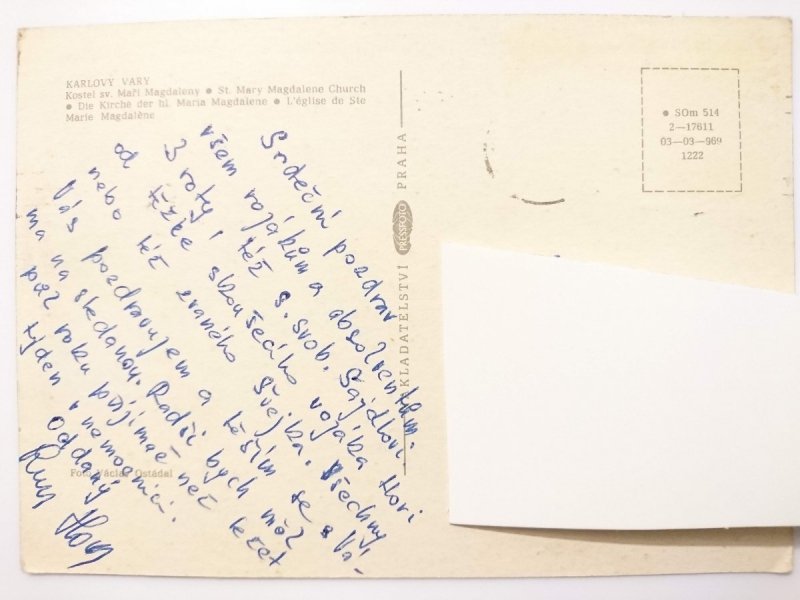 KARLOVY VARY
Kostel sv. Maří Magdaleny ● St. Mary Magdalene Church
● Die Kirche der hl. Maria Magdalene ● L'église de Ste
Marie Magdalène
Srdeční pozdrav
všem vojákům a absolventům
3 roty i též s. svob. Šajdlovi
od těžce zkoušeného vojáka Hori
nebo též zvaného Švejka. Všechny
Vás pozdravujem a těším se s Vá-
ma na skledanou. Radši bych měl
půl roku přijímač než ležet
týden v nemocnici.
Oddaný
Foto Václav Ostádal
NAKLADATELSTVÍ PRESSFOTO PRAHA
● SOm 514
2—17611
03—03—969
1222